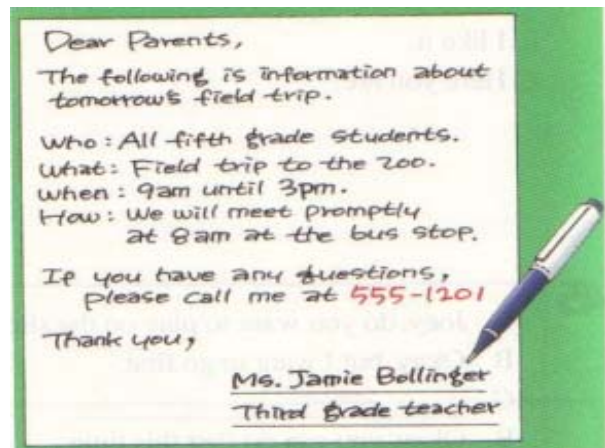 Dear Parents,
The following is information about
tomorrow's field trip.
Who: All fifth grade students.
What: Field trip to the zoo.
When: 9am until 3pm.
How: We will meet promptly
at 8am at the bus stop.
If you have any questions,
please call me at 555-1201
Thank you,
Ms. Jamie Bollinger
Third grade teacher